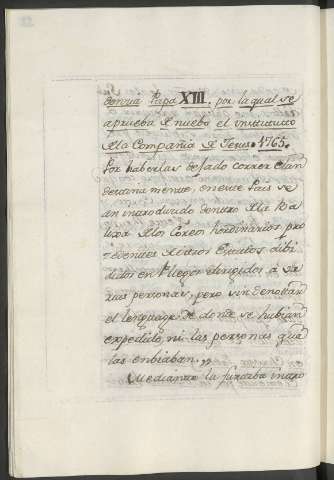 Papa XIII. por la qual se
aprueba de nuebo el instituto
de la Compañia de Jesus. 1765.
Por haberlas dejado correr clan
destina mente, en este Pais se
an introducido dentro de la Ba
lixa de los Correos hordinarios pro
zedentes de otros Estatos dibi
didos en Pliegos dirigidos á va
rias personas, pero sin denottar
el lenguage de donde se hubian
expedido, ni las personas que
las enbiaban,,
Mediante la furtiba intro